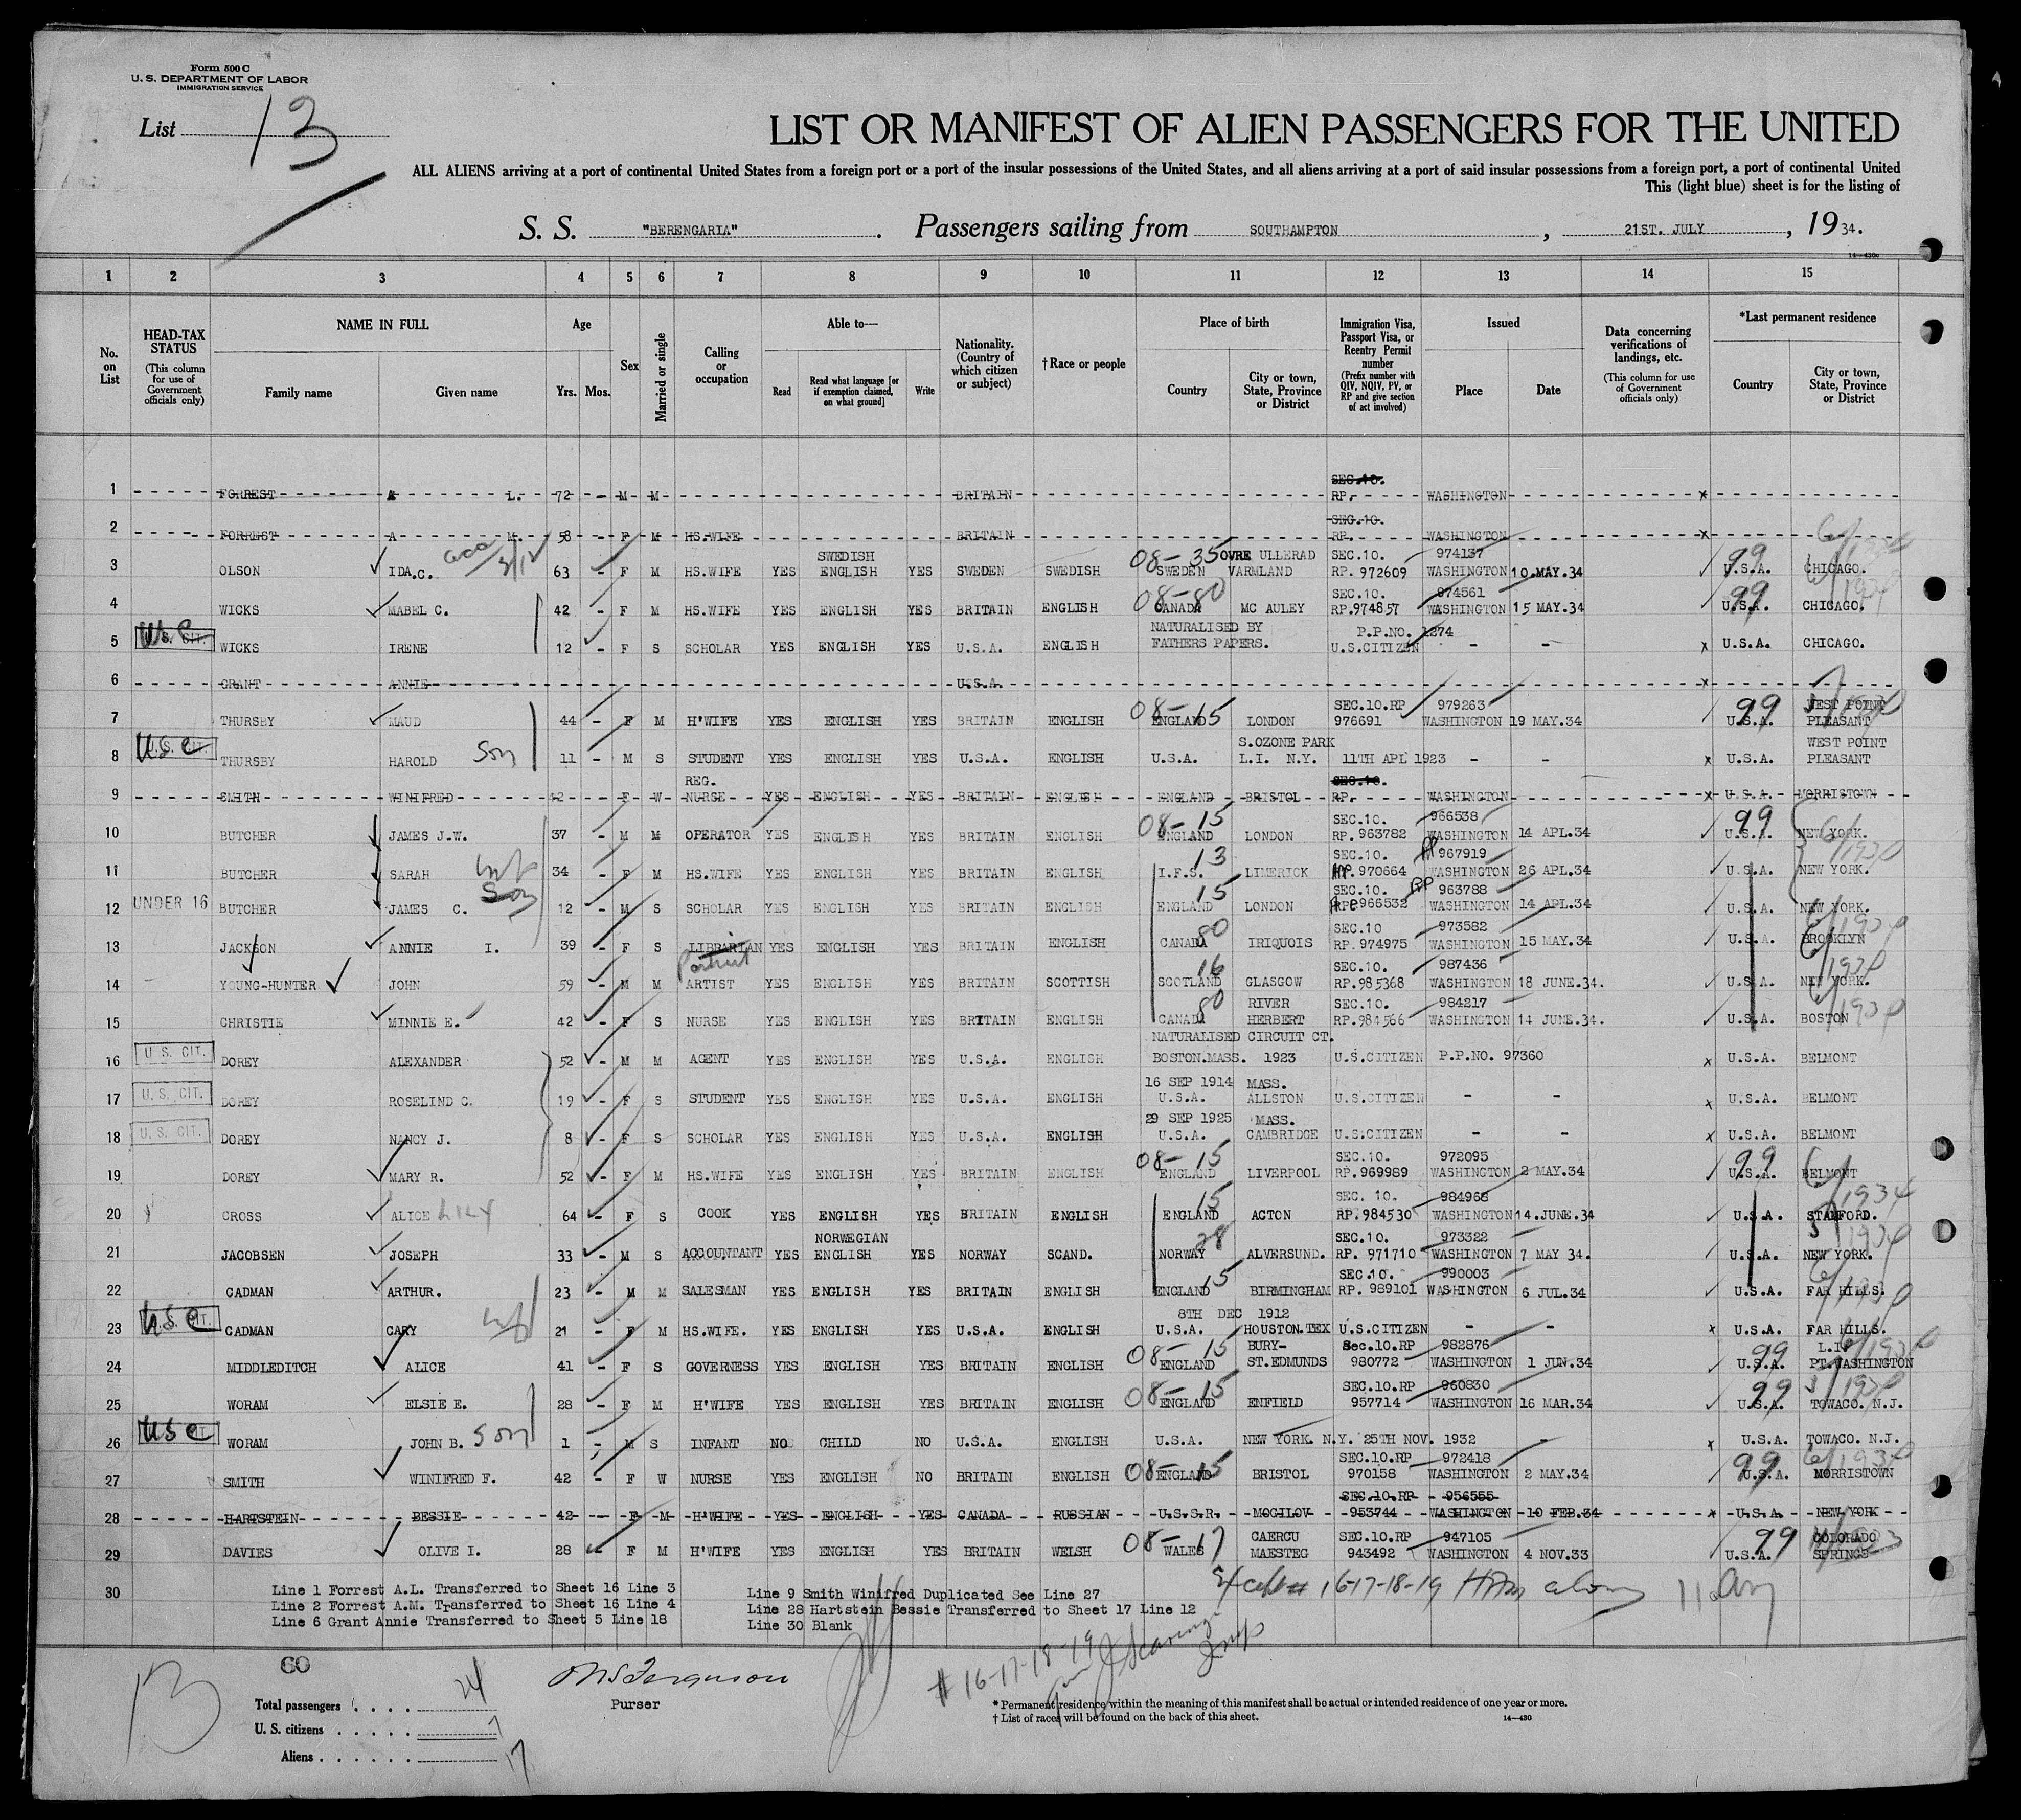 Form 500 C
U. S. DEPARTMENT OF LABOR
IMMIGRATION SERVICE
List 13
LIST OR MANIFEST OF ALIEN PASSENGERS FOR THE UNITED
ALL ALIENS arriving at a port of continental United States from a foreign port or a port of the insular possessions of the United States, and all aliens arriving at a port of said insular possessions from a foreign port, a port of continental United
This (light blue) sheet is for the listing of
S. S. "BERENGARIA". Passengers sailing from SOUTHAMPTON, 21ST. JULY, 1934.
14—430c
1 2 3 4 5 6 7 8 9 10 11 12 13 14 15
No. on List
HEAD-TAX STATUS (This column for use of Government officials only)
NAME IN FULL Family name Given name
Age Yrs. Mos.
Sex
Married or single
Calling or occupation
Able to— Read Read what language [or if exemption claimed, on what ground] Write
Nationality. (Country of which citizen or subject)
† Race or people
Place of birth Country City or town, State, Province or District
Immigration Visa, Passport Visa, or Reentry Permit number (Prefix number with QIV, NQIV, PV, or RP and give section of act involved)
Issued Place Date
Data concerning verifications of landings, etc. (This column for use of Government officials only)
*Last permanent residence Country City or town, State, Province or District
SEC.10.
1 FORREST A L. 72 - M M BRITAIN RP. WASHINGTON x
SEC.10.
2 FORREST A M. 58 - F M HS.WIFE BRITAIN RP. WASHINGTON x
SWEDISH 08-35 OVRE ULLERAD SEC.10. 974137 99
3 OLSON IDA.C. 63 - F M HS.WIFE YES ENGLISH YES SWEDEN SWEDISH SWEDEN VARMLAND RP. 972609 WASHINGTON 10.MAY.34 U.S.A. CHICAGO.
08-80 SEC.10. 974561 99
4 WICKS MABEL C. 42 - F M HS.WIFE YES ENGLISH YES BRITAIN ENGLISH CANADA MC AULEY RP.974857 WASHINGTON 15 MAY.34 U.S.A. CHICAGO.
USC U.S. CIT. NATURALISED BY P.P.NO. 1274
5 WICKS IRENE 12 - F S SCHOLAR YES ENGLISH YES U.S.A. ENGLISH FATHERS PAPERS. U.S.CITIZEN - - x U.S.A. CHICAGO.
6 GRANT ANNIE U.S.A. x
08-15 SEC.10.RP 979263 99 WEST POINT
7 THURSBY MAUD 44 - F M H'WIFE YES ENGLISH YES BRITAIN ENGLISH ENGLAND LONDON 976691 WASHINGTON 19 MAY.34 U.S.A. PLEASANT
USC U.S. CIT. S.OZONE PARK WEST POINT
8 THURSBY HAROLD Son 11 - M S STUDENT YES ENGLISH YES U.S.A. ENGLISH U.S.A. L.I. N.Y. 11TH APL 1923 - - x U.S.A. PLEASANT
REG. SEC.10.
9 SMITH WINIFRED 42 - F W NURSE YES ENGLISH YES BRITAIN ENGLISH ENGLAND BRISTOL RP. WASHINGTON x U.S.A. MORRISTOWN
08-15 SEC.10. 966538 99
10 BUTCHER JAMES J.W. 37 - M M OPERATOR YES ENGLISH YES BRITAIN ENGLISH ENGLAND LONDON RP. 963782 WASHINGTON 14 APL.34 U.S.A. NEW YORK.
13 SEC.10. 967919
11 BUTCHER SARAH Wf 34 - F M HS.WIFE YES ENGLISH YES BRITAIN ENGLISH I.F.S. LIMERICK RP.970664 WASHINGTON 26 APL.34 U.S.A. NEW YORK.
15 SEC.10. RP 963788
12 UNDER 16 BUTCHER JAMES C. Son 12 - M S SCHOLAR YES ENGLISH YES BRITAIN ENGLISH ENGLAND LONDON 966532 WASHINGTON 14 APL.34 U.S.A. NEW YORK.
80 SEC.10 973582
13 JACKSON ANNIE I. 39 - F S LIBRARIAN YES ENGLISH YES BRITAIN ENGLISH CANADA IRIQUOIS RP.974975 WASHINGTON 15 MAY.34 U.S.A. BROOKLYN
Portrait 16 SEC.10. 987436
14 YOUNG-HUNTER JOHN 59 - M M ARTIST YES ENGLISH YES BRITAIN SCOTTISH SCOTLAND GLASGOW RP.985368 WASHINGTON 18 JUNE.34. U.S.A. NEW YORK.
80 RIVER SEC.10. 984217
15 CHRISTIE MINNIE E. 42 - F S NURSE YES ENGLISH YES BRITAIN ENGLISH CANADA HERBERT RP.984566 WASHINGTON 14 JUNE.34. U.S.A. BOSTON
U.S. CIT. NATURALISED CIRCUIT CT.
16 DOREY ALEXANDER 52 - M M AGENT YES ENGLISH YES U.S.A. ENGLISH BOSTON.MASS. 1923 U.S.CITIZEN P.P.NO. 97360 x U.S.A. BELMONT
U.S. CIT. 16 SEP 1914 MASS.
17 DOREY ROSELIND C. 19 - F S STUDENT YES ENGLISH YES U.S.A. ENGLISH U.S.A. ALLSTON U.S.CITIZEN - - x U.S.A. BELMONT
U.S. CIT. 29 SEP 1925 MASS.
18 DOREY NANCY J. 8 - F S SCHOLAR YES ENGLISH YES U.S.A. ENGLISH U.S.A. CAMBRIDGE U.S.CITIZEN - - x U.S.A. BELMONT
08-15 SEC.10. 972095 99
19 DOREY MARY R. 52 - F M HS.WIFE YES ENGLISH YES BRITAIN ENGLISH ENGLAND LIVERPOOL RP.969989 WASHINGTON 2 MAY.34 U.S.A. BELMONT
15 SEC. 10. 984968
20 CROSS ALICE LILY 64 - F S COOK YES ENGLISH YES BRITAIN ENGLISH ENGLAND ACTON RP.984530 WASHINGTON 14.JUNE.34 U.S.A. STAMFORD.
NORWEGIAN 28 SEC.10. 973322
21 JACOBSEN JOSEPH 33 - M S ACCOUNTANT YES ENGLISH YES NORWAY SCAND. NORWAY ALVERSUND. RP. 971710 WASHINGTON 7 MAY 34. U.S.A. NEW YORK.
15 SEC.10. 990003
22 CADMAN ARTHUR. 23 - M M SALESMAN YES ENGLISH YES BRITAIN ENGLISH ENGLAND BIRMINGHAM RP. 989101 WASHINGTON 6 JUL.34 U.S.A. FAR HILLS.
USC 8TH DEC 1912
23 CADMAN CARY Wf 21 - F M HS.WIFE. YES ENGLISH YES U.S.A. ENGLISH U.S.A. HOUSTON.TEX U.S.CITIZEN - - x U.S.A. FAR HILLS.
08-15 BURY- Sec.10.RP 982876 99 L.I.
24 MIDDLEDITCH ALICE 41 - F S GOVERNESS YES ENGLISH YES BRITAIN ENGLISH ENGLAND ST.EDMUNDS 980772 WASHINGTON 1 JUN.34 U.S.A. PT.WASHINGTON
08-15 SEC.10.RP 960830 99
25 WORAM ELSIE E. 28 - F M H'WIFE YES ENGLISH YES BRITAIN ENGLISH ENGLAND ENFIELD 957714 WASHINGTON 16 MAR.34 U.S.A. TOWACO. N.J.
USC
26 WORAM JOHN B. Son 1 - M S INFANT NO CHILD NO U.S.A. ENGLISH U.S.A. NEW YORK. N.Y. 25TH NOV. 1932 - x U.S.A. TOWACO. N.J.
08-15 SEC.10.RP 972418 99
27 SMITH WINIFRED F. 42 - F W NURSE YES ENGLISH NO BRITAIN ENGLISH ENGLAND BRISTOL 970158 WASHINGTON 2 MAY.34 U.S.A. MORRISTOWN
SEC.10.RP 956555
28 HARTSTEIN BESSIE 42 - F M H'WIFE YES ENGLISH YES CANADA RUSSIAN U.S.S.R. MOGILOV 953744 WASHINGTON 10 FEB.34 x U.S.A. NEW YORK
08-17 CAERCU SEC.10.RP 947105 99 COLORADO
29 DAVIES OLIVE I. 28 - F M H'WIFE YES ENGLISH YES BRITAIN WELSH WALES MAESTEG 943492 WASHINGTON 4 NOV.33 U.S.A. SPRINGS
30
Line 1 Forrest A.L. Transferred to Sheet 16 Line 3
Line 2 Forrest A.M. Transferred to Sheet 16 Line 4
Line 6 Grant Annie Transferred to Sheet 5 Line 18
Line 9 Smith Winifred Duplicated See Line 27
Line 28 Hartstein Bessie Transferred to Sheet 17 Line 12
Line 30 Blank
16-17-18-19
# 16-17-18-19
13
60
Total passengers . . . . 24
U. S. citizens . . . . . 7
Aliens . . . . . . 17
Ferguson
Purser
* Permanent residence within the meaning of this manifest shall be actual or intended residence of one year or more.
† List of races will be found on the back of this sheet.
14—430